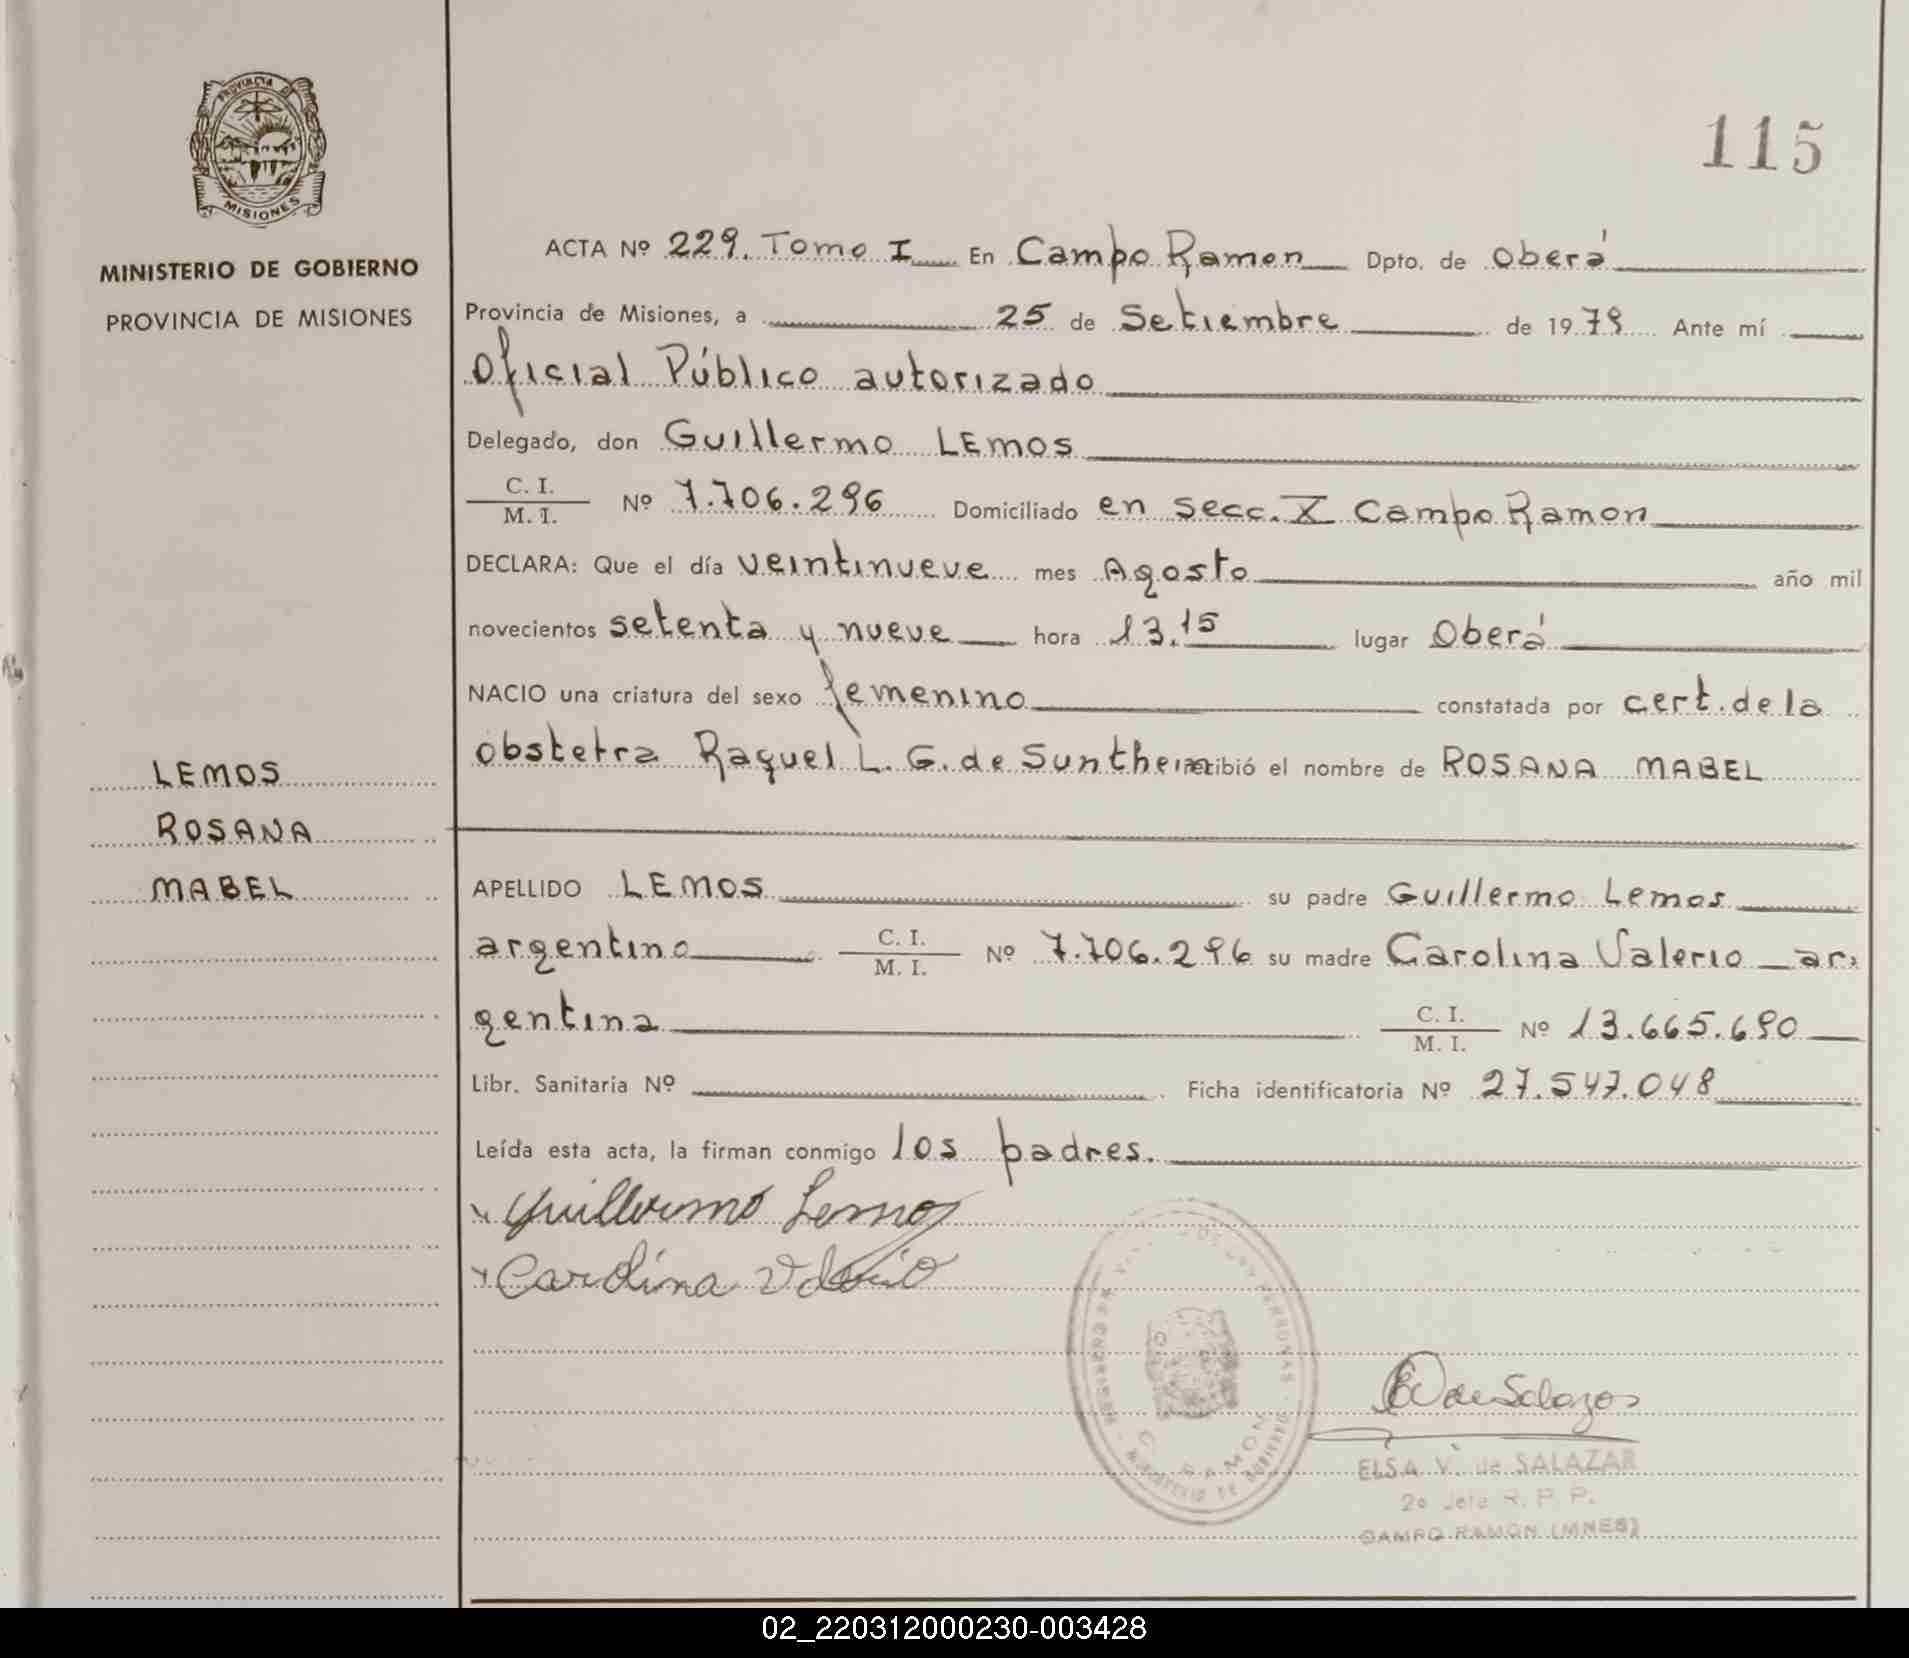 PROVINCIA D
MISIONES
MINISTERIO DE GOBIERNO
PROVINCIA DE MISIONES
LEMOS
ROSANA
MABEL
115
ACTA Nº 229. Tomo I En Campo Ramon Dpto. de Oberá
Provincia de Misiones, a 25 de Setiembre de 1979 Ante mí
Oficial Público autorizado
Delegado, don Guillermo LEMOS
C. I.
M. I. Nº 7.706.296 Domiciliado en secc. X Campo Ramon
DECLARA: Que el día veintinueve mes Agosto año mil
novecientos setenta y nueve hora 13.15 lugar Oberá
NACIO una criatura del sexo femenino constatada por cert. de la
obstetra Raquel L. G. de Sunthein recibió el nombre de ROSANA MABEL
APELLIDO LEMOS su padre Guillermo Lemos
argentino C. I.
M. I. Nº 7.706.296 su madre Carolina Valerio ar-
gentina C. I.
M. I. Nº 13.665.690
Libr. Sanitaria Nº Ficha identificatoria Nº 27.547.048
Leída esta acta, la firman conmigo los padres.
Guillermo Lemos
Carolina Valerio
C. RAMON
MINISTERIO DE GOBIERNO
EV de Salazar
ELSA V. de SALAZAR
2º Jefe R. P. P.
CAMPO RAMON (MNES)
02_220312000230-003428